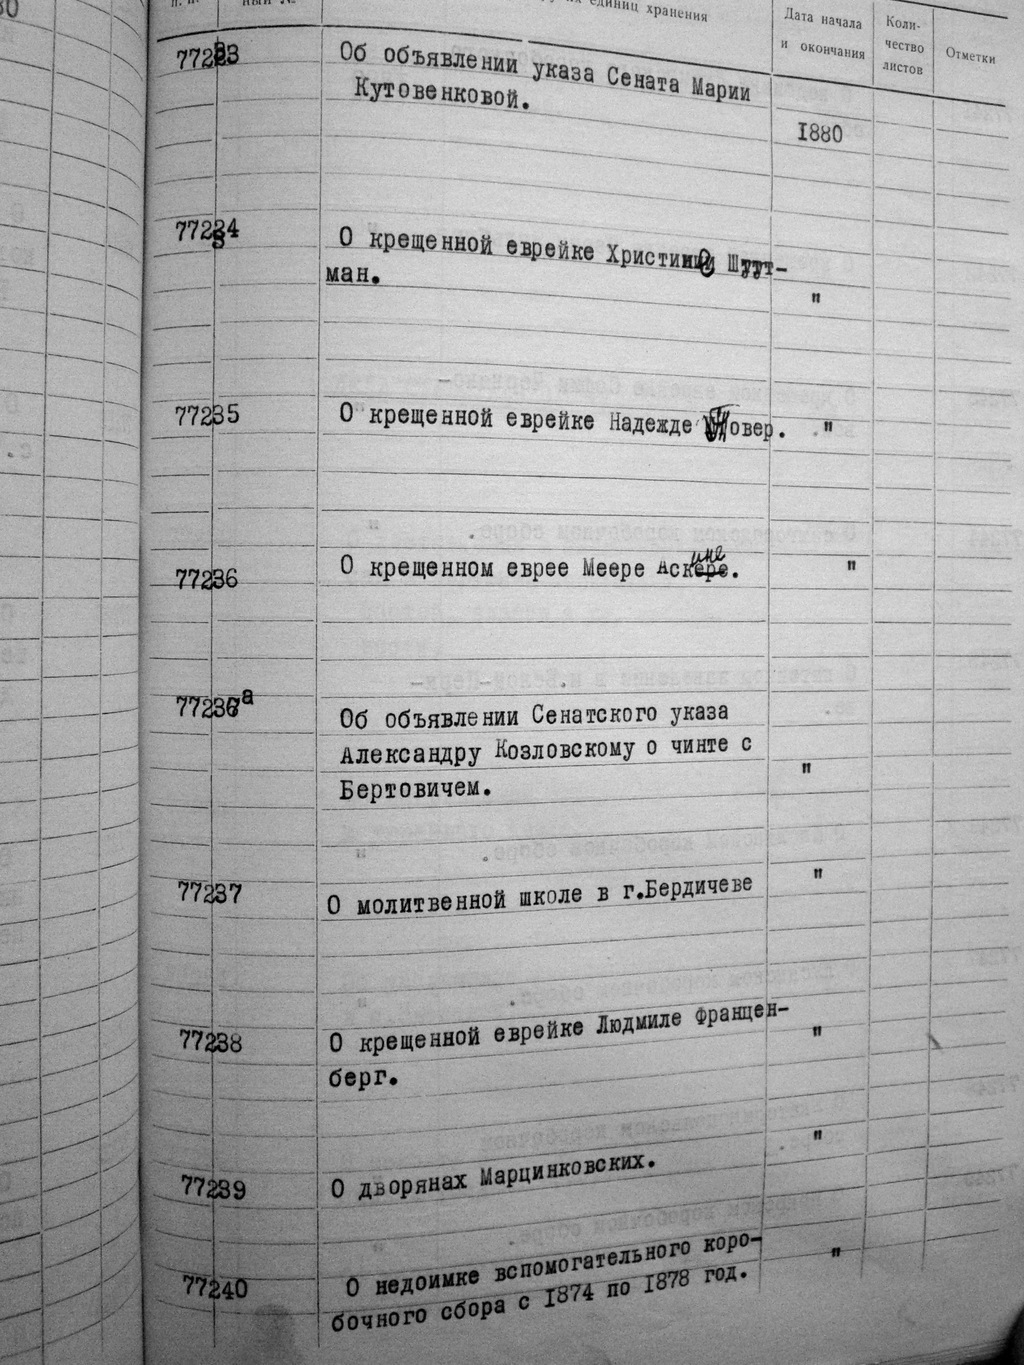 единиц хранения
Дата начала
и окончания
Коли-
чество
листов
Отметки
77233 Об объявлении указа Сената Марии
Кутовенковой.
1880
77234 О крещенной еврейке
ман. "
77235 О крещенной еврейке Надежде "
77236 О крещенном еврее Меере Аскине. "
77236а Об объявлении Сенатского указа
Александру Козловскому о чинте с
Бертовичем. "
77237 О молитвенной школе в г.Бердичеве "
77238 О крещенной еврейке Людмиле Францен-
берг. "
77239 О дворянах Марцинковских. "
77240 О недоимке вспомогательного коро-
бочного сбора с 1874 по 1878 год. "